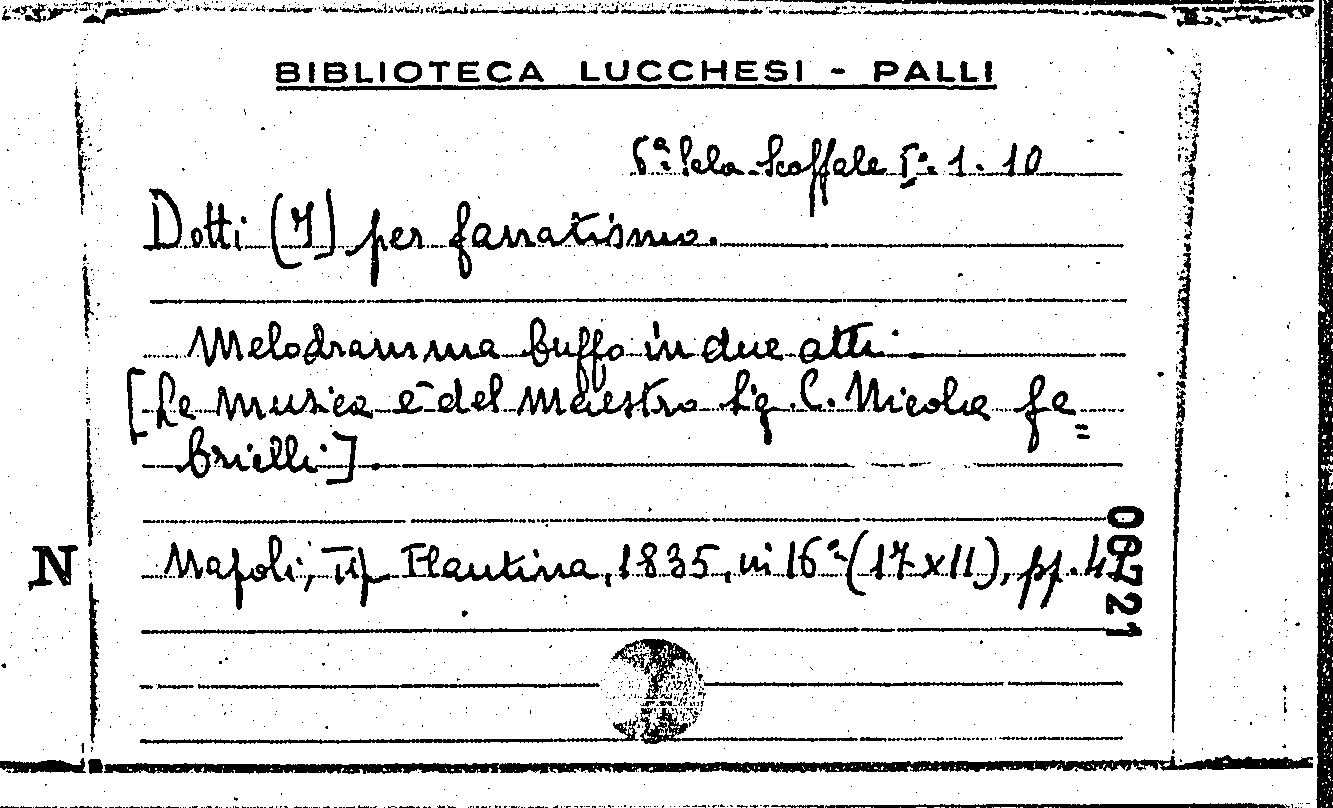 BIBLIOTECA LUCCHESI - PALLI
6ª Sala Scaffale Iº. 1. 10
Dotti (I) per fanatismo.
Melodramma buffo in due atti.
[La musica è del maestro Sig. C. Nicola Ga=
brielli].
N
Napoli, Tip. Flautina, 1835, in 16º (17x11), pp.
00721